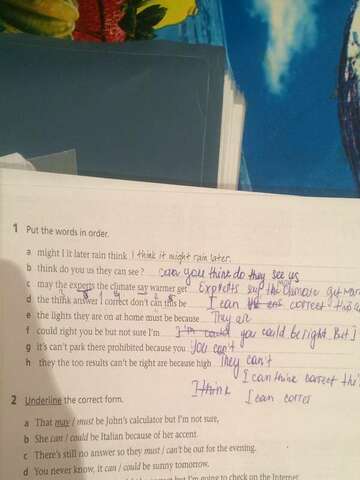 1 Put the words in order.
a might I it later rain think I think it might rain later.
b think do you us they can see? can you think do they see us
c may the experts the climate say warmer get Experts say the climate get
d the think answer I correct don't can this be I can correct this
e the lights they are on at home must be because They are
f could right you be but not sure I'm I'm could you could be right. But I
g it's can't park there prohibited because you You can't
h they the too results can't be right are because high They can't
I can think correct this
I think I can correct
2 Underline the correct form.
a That may / must be John's calculator but I'm not sure,
b She can / could be Italian because of her accent.
c There's still no answer so they must / can't be out for the evening.
d You never know, it can / could be sunny tomorrow.
but I'm going to check on the Internet.